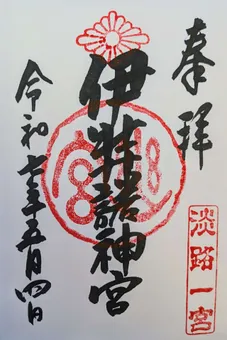 奉拝
伊弉諾神宮
令和七年五月四日
淡路一宮